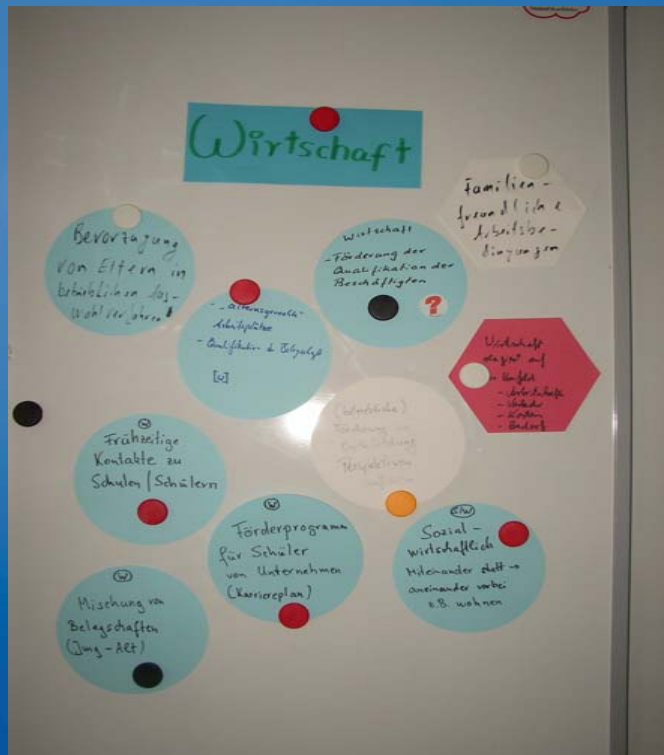 Wirtschaft
Familien-
freundliche
Arbeitsbe-
dingungen
Bevorzugung
von Eltern in
betrieblichen Aus-
wahlverfahren!
Wirtschaft
- Förderung der
Qualifikation der
Beschäftigten
?
Arbeitsplätze
- Qualifikation d. Belegschaft
[W]
Wirtschaft
auf
- Verkehr
- Kosten
- Bedarf
(betriebliche)
Förderung
Perspektiven
W
Frühzeitige
Kontakte zu
Schulen/Schülern
W
Förderprogramm
für Schüler
von Unternehmen
(Karriereplan)
S/W
Sozial-
wirtschaftlich
Miteinander statt →
aneinander vorbei
z.B. wohnen
W
Mischung von
Belegschaften
(Jung-Alt)